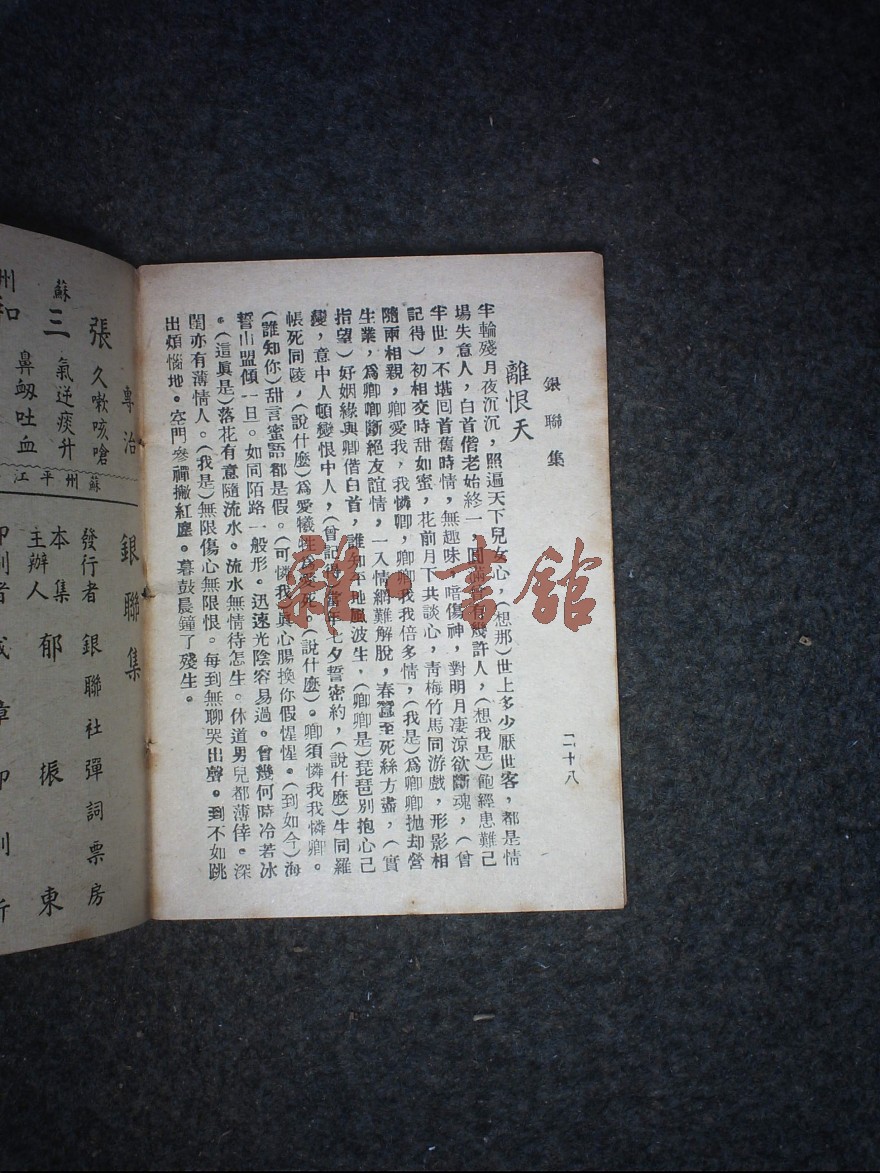 銀聯集
二十八
離恨天
半輪殘月夜沉沉，照遍天下兒女心，(想那)世上多少厭世客，都是情
場失意人，白首偕老始終一，圓滿幾許人，(想我是)飽經患難己
半世，不堪囘首舊時情，無趣味，暗傷神，對明月凄涼欲斷魂，(曾
記得)初相交時甜如蜜，花前月下共談心，靑梅竹馬同游戲，形影相
隨兩相親，卿愛我，我憐卿，卿卿我我倍多情，(我是)爲卿卿拋却營
生業，爲卿卿斷絕友誼情，一入情網難解脫，春蠶至死絲方盡，(實
指望)好姻緣與卿偕白首，誰知平地風波生，(卿卿是)琵琶別抱心己
變，意中人頓變恨中人，(曾記得)當年七夕誓密約，(說什麼)生同羅
帳死同陵，(說什麼)爲愛犧牲爲愛死。(說什麼)。卿須憐我我憐卿。
(誰知你)甜言蜜語都是假。(可憐我)眞心腸換你假惺惺。(到如今)海
誓山盟傾一旦。如同陌路一般形。迅速光陰容易過。曾幾何時冷若冰
。(這眞是)落花有意隨流水。流水無情待怎生。休道男兒都薄倖。深
閨亦有薄情人。(我是)無限傷心無限恨。每到無聊哭出聲。到不如跳
出煩惱地。空門參禪撇紅塵。暮鼓晨鐘了殘生。
雜書館
專治
張久嗽咳嗆
蘇三氣逆痰升
州和鼻衂吐血
蘇州平江
銀聯集
發行者 銀聯社彈詞票房
本集主辦人 郁振東
印刷者 成章印刷所